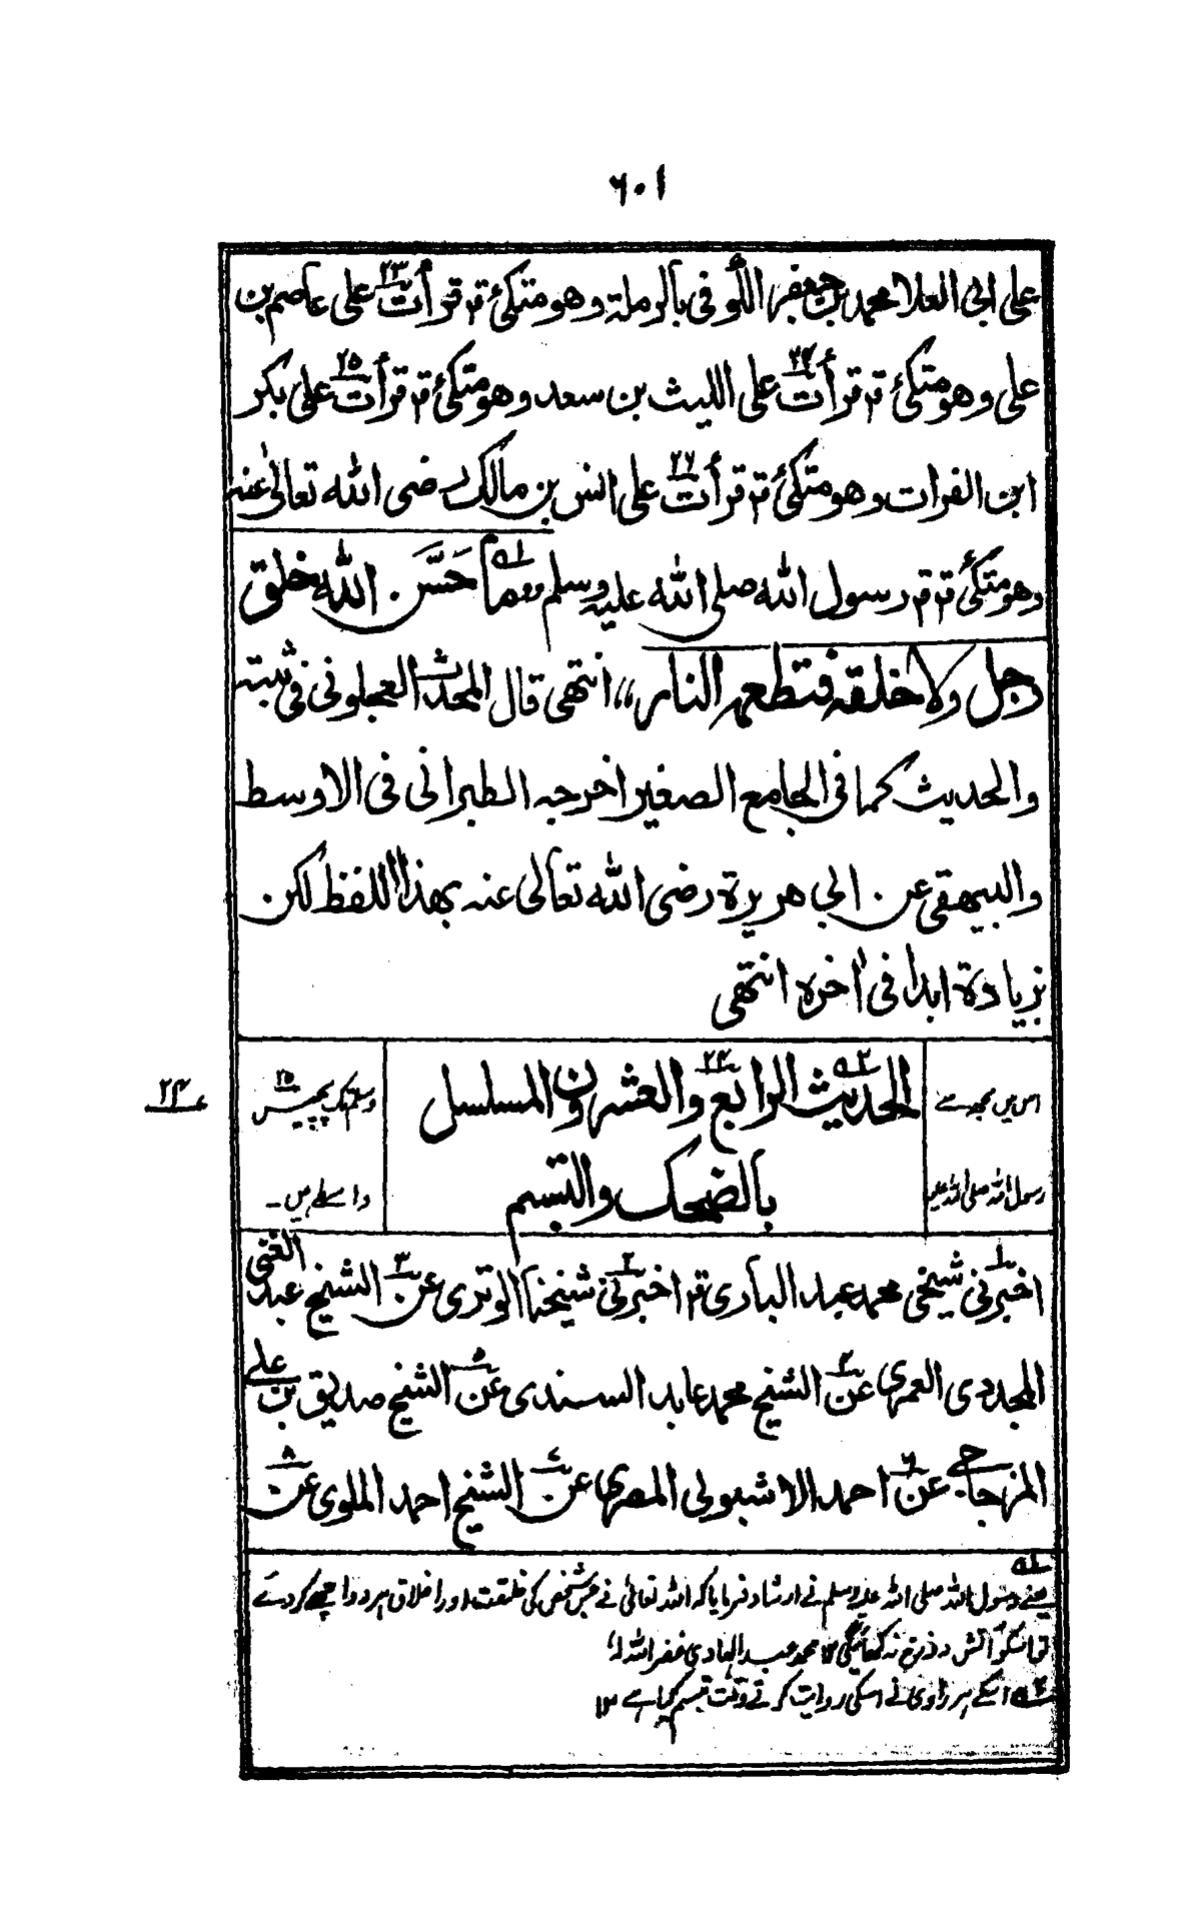 ۱۰۶
علی ابی العلا محمد بن جعفر الکوفی بالرملة وهو متکئ قرأت۲۳ علی عاصم بن
علی وهو متکئ قر قرأت۲۴ علی اللیث بن سعد وهو متکئ قر قرأت۲۵ علی بکر
ابن الفرات وهو متکئ قر قرأت۲۶ علی انس بن مالک رضی الله تعالیٰ عنه
وهو متکئ قر قر رسول الله صلی الله علیه وسلم ما حَسَّن الله خلق
رجل ولا خلقه فتطعمه النار،، انتهی قال المحدث العجلونی فی ثبته
والحدیث کما فی الجامع الصغیر اخرجه الطبرانی فی الاوسط
والبیهقی عن ابی هریرة رضی الله تعالی عنه بهذا اللفظ لکن
بزیادة ابدا فی اٰخره انتهی
اس میں مجھ سے
رسول اللہ صلی اللہ علیہ
الحدیث الرابع۲۴ والعشرون المسلسل
بالضحک والتبسم
وسلم تک پچیس۲۵
واسطے ہیں۔
۲۴
اخبرنی۱ شیخی محمد عبد الباری قر اخبرنی۲ شیخنا الوتری عن۳ الشیخ عبد الغنی
المجددی العمری عن۴ الشیخ محمد عابد السندی عن۵ الشیخ صدیق بن علی
المزجاجی عن۶ احمد الاشبولی المصری عن۷ الشیخ احمد الملوی عن۸
۱ یعنے رسول اللہ صلی اللہ علیہ وسلم نے ارشاد فرمایا کہ اللہ تعالیٰ نے جس شخص کی خلقت اور اخلاق ہر دو اچھے کر دئے
تو اسکو آتش دوزخ نہ کھائیگی ۱۲ محمد عبد الهادی غفر الله له
۲ اسکے ہر راوی نے اسکی روایت کرتے وقت تبسم کیا ہے ۱۲